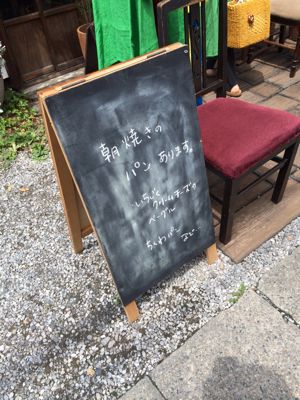 朝焼きの
パン あります。
いちじく
クリームチーズの
ベーグル
ちくわパン など…